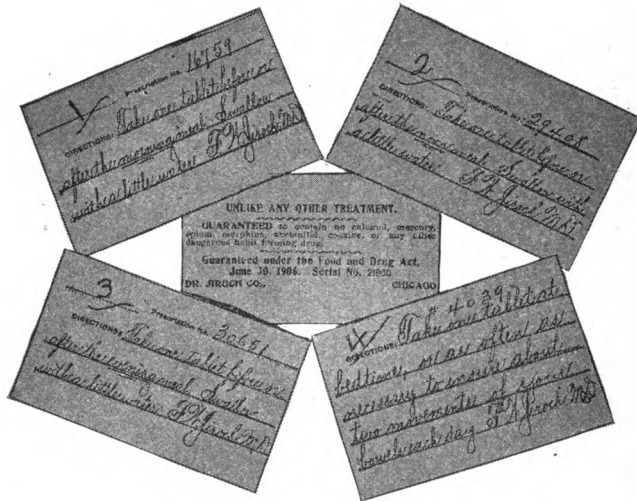 1 Prescription No. 16759
DIRECTIONS: Take one tablet before or
after the morning meal Swallow
with a little water F. W. Jiroch M.D.
2 Prescription No. 29408
DIRECTIONS: Take one tablet before or
after the noon meal Swallow with
a little water F. W. Jiroch M.D.
UNLIKE ANY OTHER TREATMENT.
GUARANTEED to contain no calomel, mercury,
opium, morphine, acetanilid, cocaine, or any other
dangerous habit forming drug.
Guaranteed under the Food and Drug Act,
June 30, 1906. Serial No.
DR. JIROCH CO., CHICAGO
3 Prescription No. 30651
DIRECTIONS: Take one tablet before or
after the evening meal Swallow
with a little water F. W. Jiroch M.D.
4 4039
DIRECTIONS: Take one tablet at
bedtime, or as often as
necessary to ensure about
two movements of your
bowels each day F. W. Jiroch M.D.